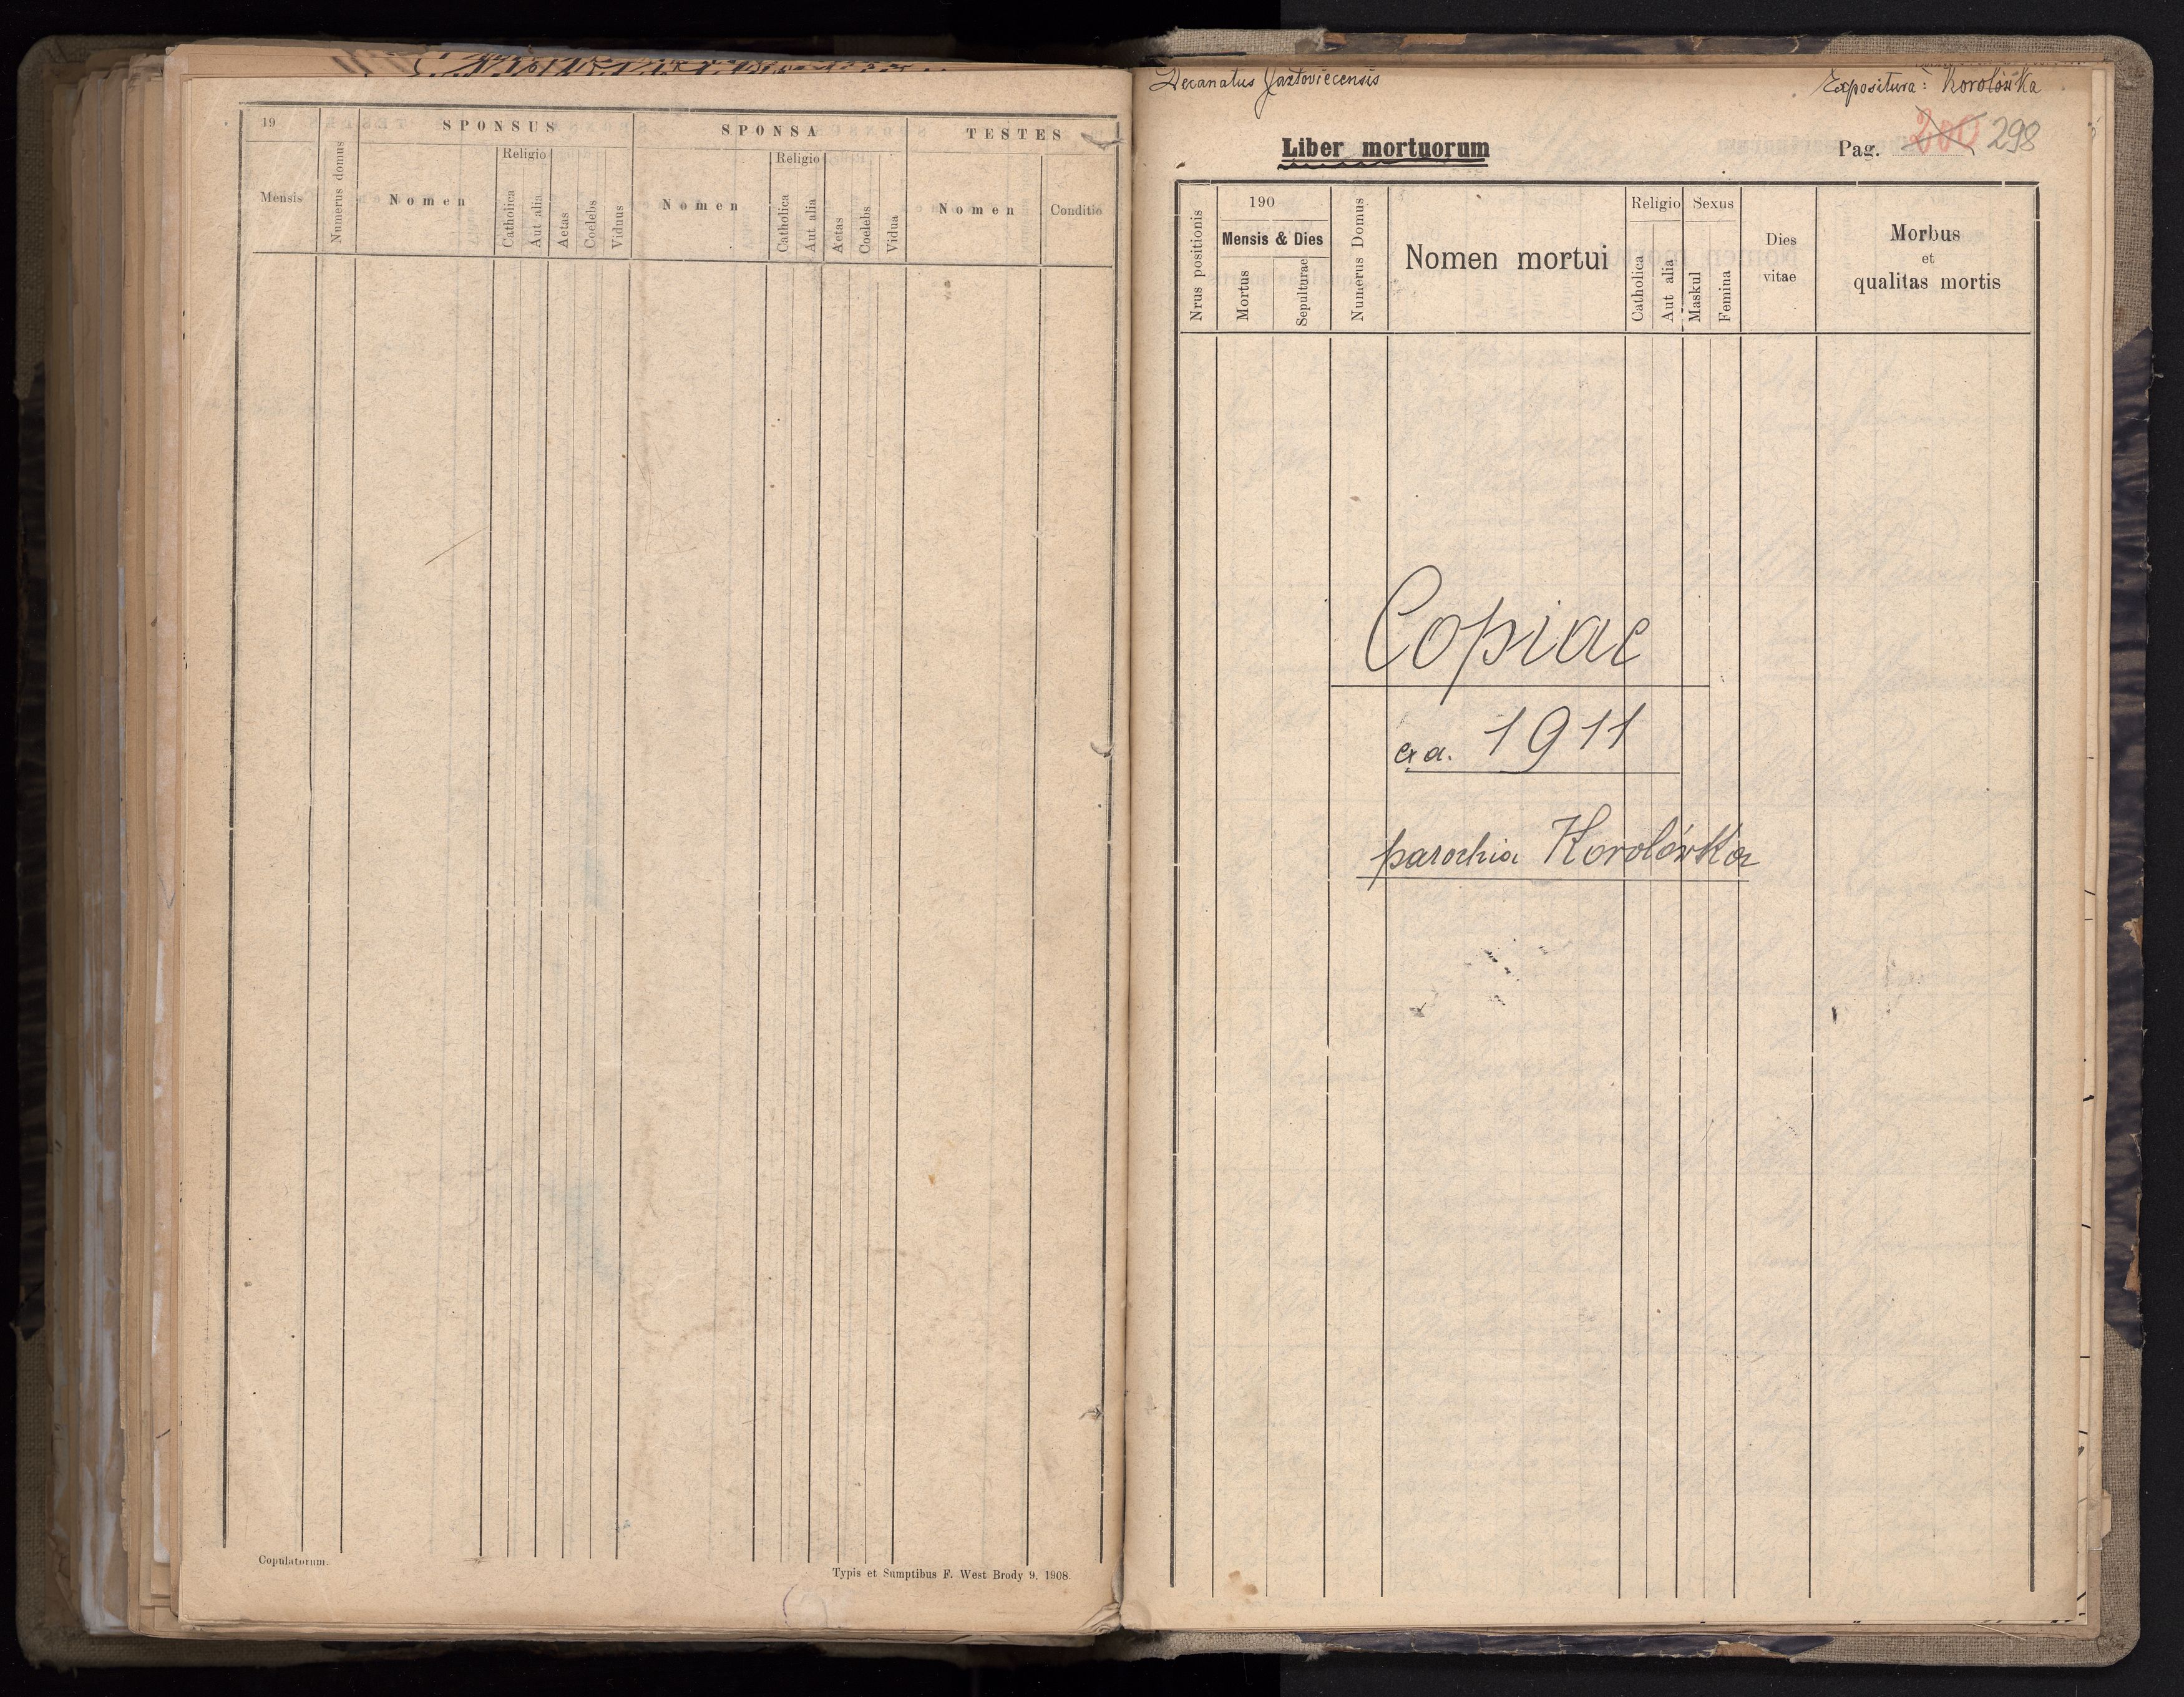 19
SPONSUS
SPONSA
TESTES
Mensis
Numerus domus
Nomen
Religio
Catholica
Aut alia
Aetas
Coelebs
Viduus
Nomen
Religio
Catholica
Aut alia
Aetas
Coelebs
Vidua
Nomen
Conditio
Copulatorum.
Typis et Sumptibus F. West Brody 9. 1908.
Decanatus Jazłoviecensis
Expositura: Korolówka
Liber mortuorum
Pag. 200 298
Nrus positionis
190
Mensis & Dies
Mortus
Sepulturae
Numerus Domus
Nomen mortui
Religio
Catholica
Aut alia
Sexus
Maskul
Femina
Dies
vitae
Morbus
et
qualitas mortis
Copiae
a. 1911
parochia Korolówka